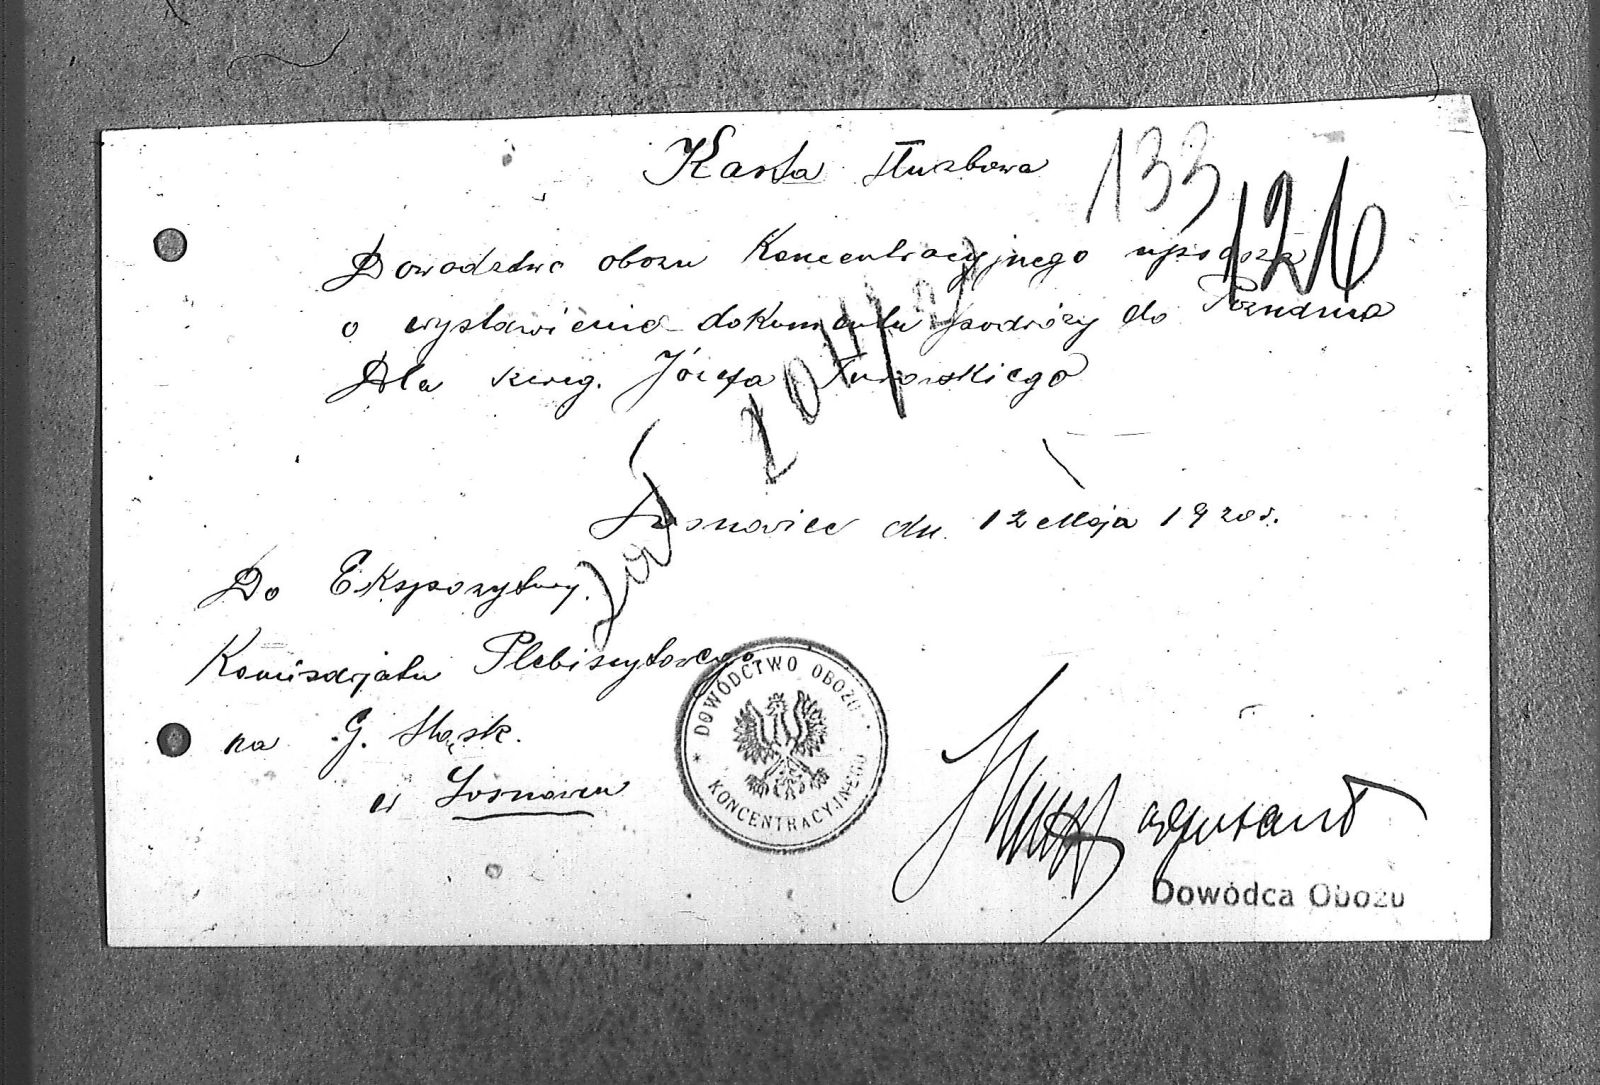 Karta służbowa
133
126
Dowodztwo obozu Koncentracyjnego uprasza
o wystawienie dokumentu podróży do Poznania
Dla szereg. Józefa Turowskiego
Sosnowiec dn. 12 Maja 1920 r.
Do Ekspozytury
Komisarjatu Plebiscytowego
na G. Śląsk.
w Sosnowcu
* DOWÓDCTWO OBOZU *
KONCENTRACYJNEGO
adjutant
Dowódca Obozu